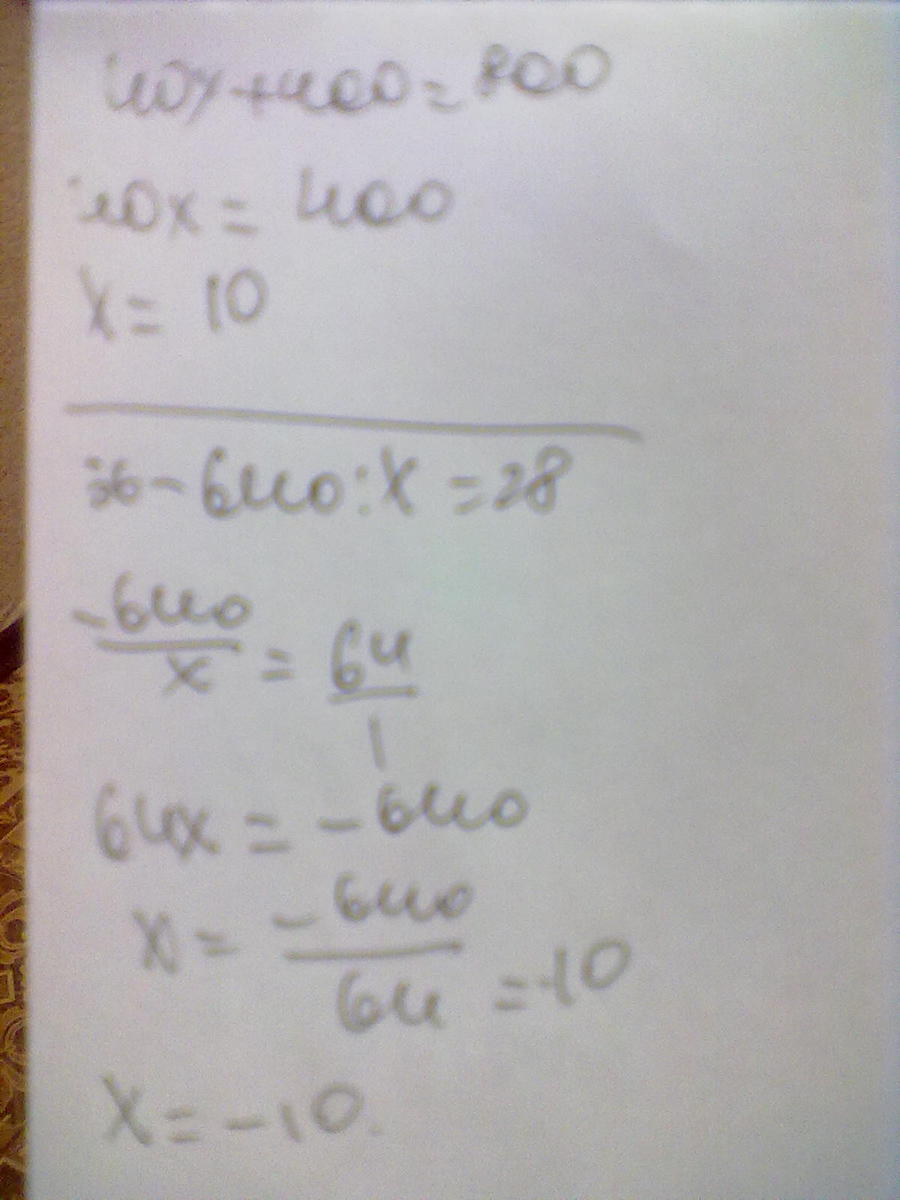 40x+400=800
40x = 400
x = 10
36-640:x=28
-640/x = 64/1
64x = -640
x = -640/64 = -10
x = -10.